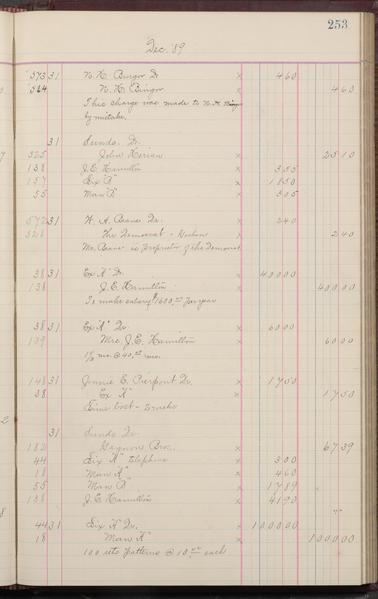 253
Dec. '89
573 31 N. K. Burgor Dr × 460
564 N. K. Bingor × 460
This charge was made to N. K.
by mistake.
31 Sunds. Dr.
325 John × 2510
138 J. E. Hamilton × 355
157 Six "A" × 1850
55 Man "B" × 305
572 31 H. A. Beane Dr. × 240
328 The Democrat - Goshen × 240
Mr. Beane is proprietor of the Democrat
38 31 Ex "K" Dr. × 40000
138 J. E. Hamilton × 40000
To make salary $1600.00 per year
38 31 Ex "K" Dr. × 6000
139 Mrs. J. E. Hamilton × 6000
1 1/2 mo. @ 40.00 mo.
148 31 Jennie E. Pierpont Dr. × 1750
38 Ex "K" × 1750
Time lost - weeks
31 Sunds Dr.
182 Gagnon Bro. × 6739
44 Six "K" telephone × 300
18 Man "K" × 460
55 Man "B" × 1789
138 J. E. Hamilton × 4190
44 31 Six "K" Dr. × 100000
18 Man "K" × 100000
100 sets patterns @ 10.00 each